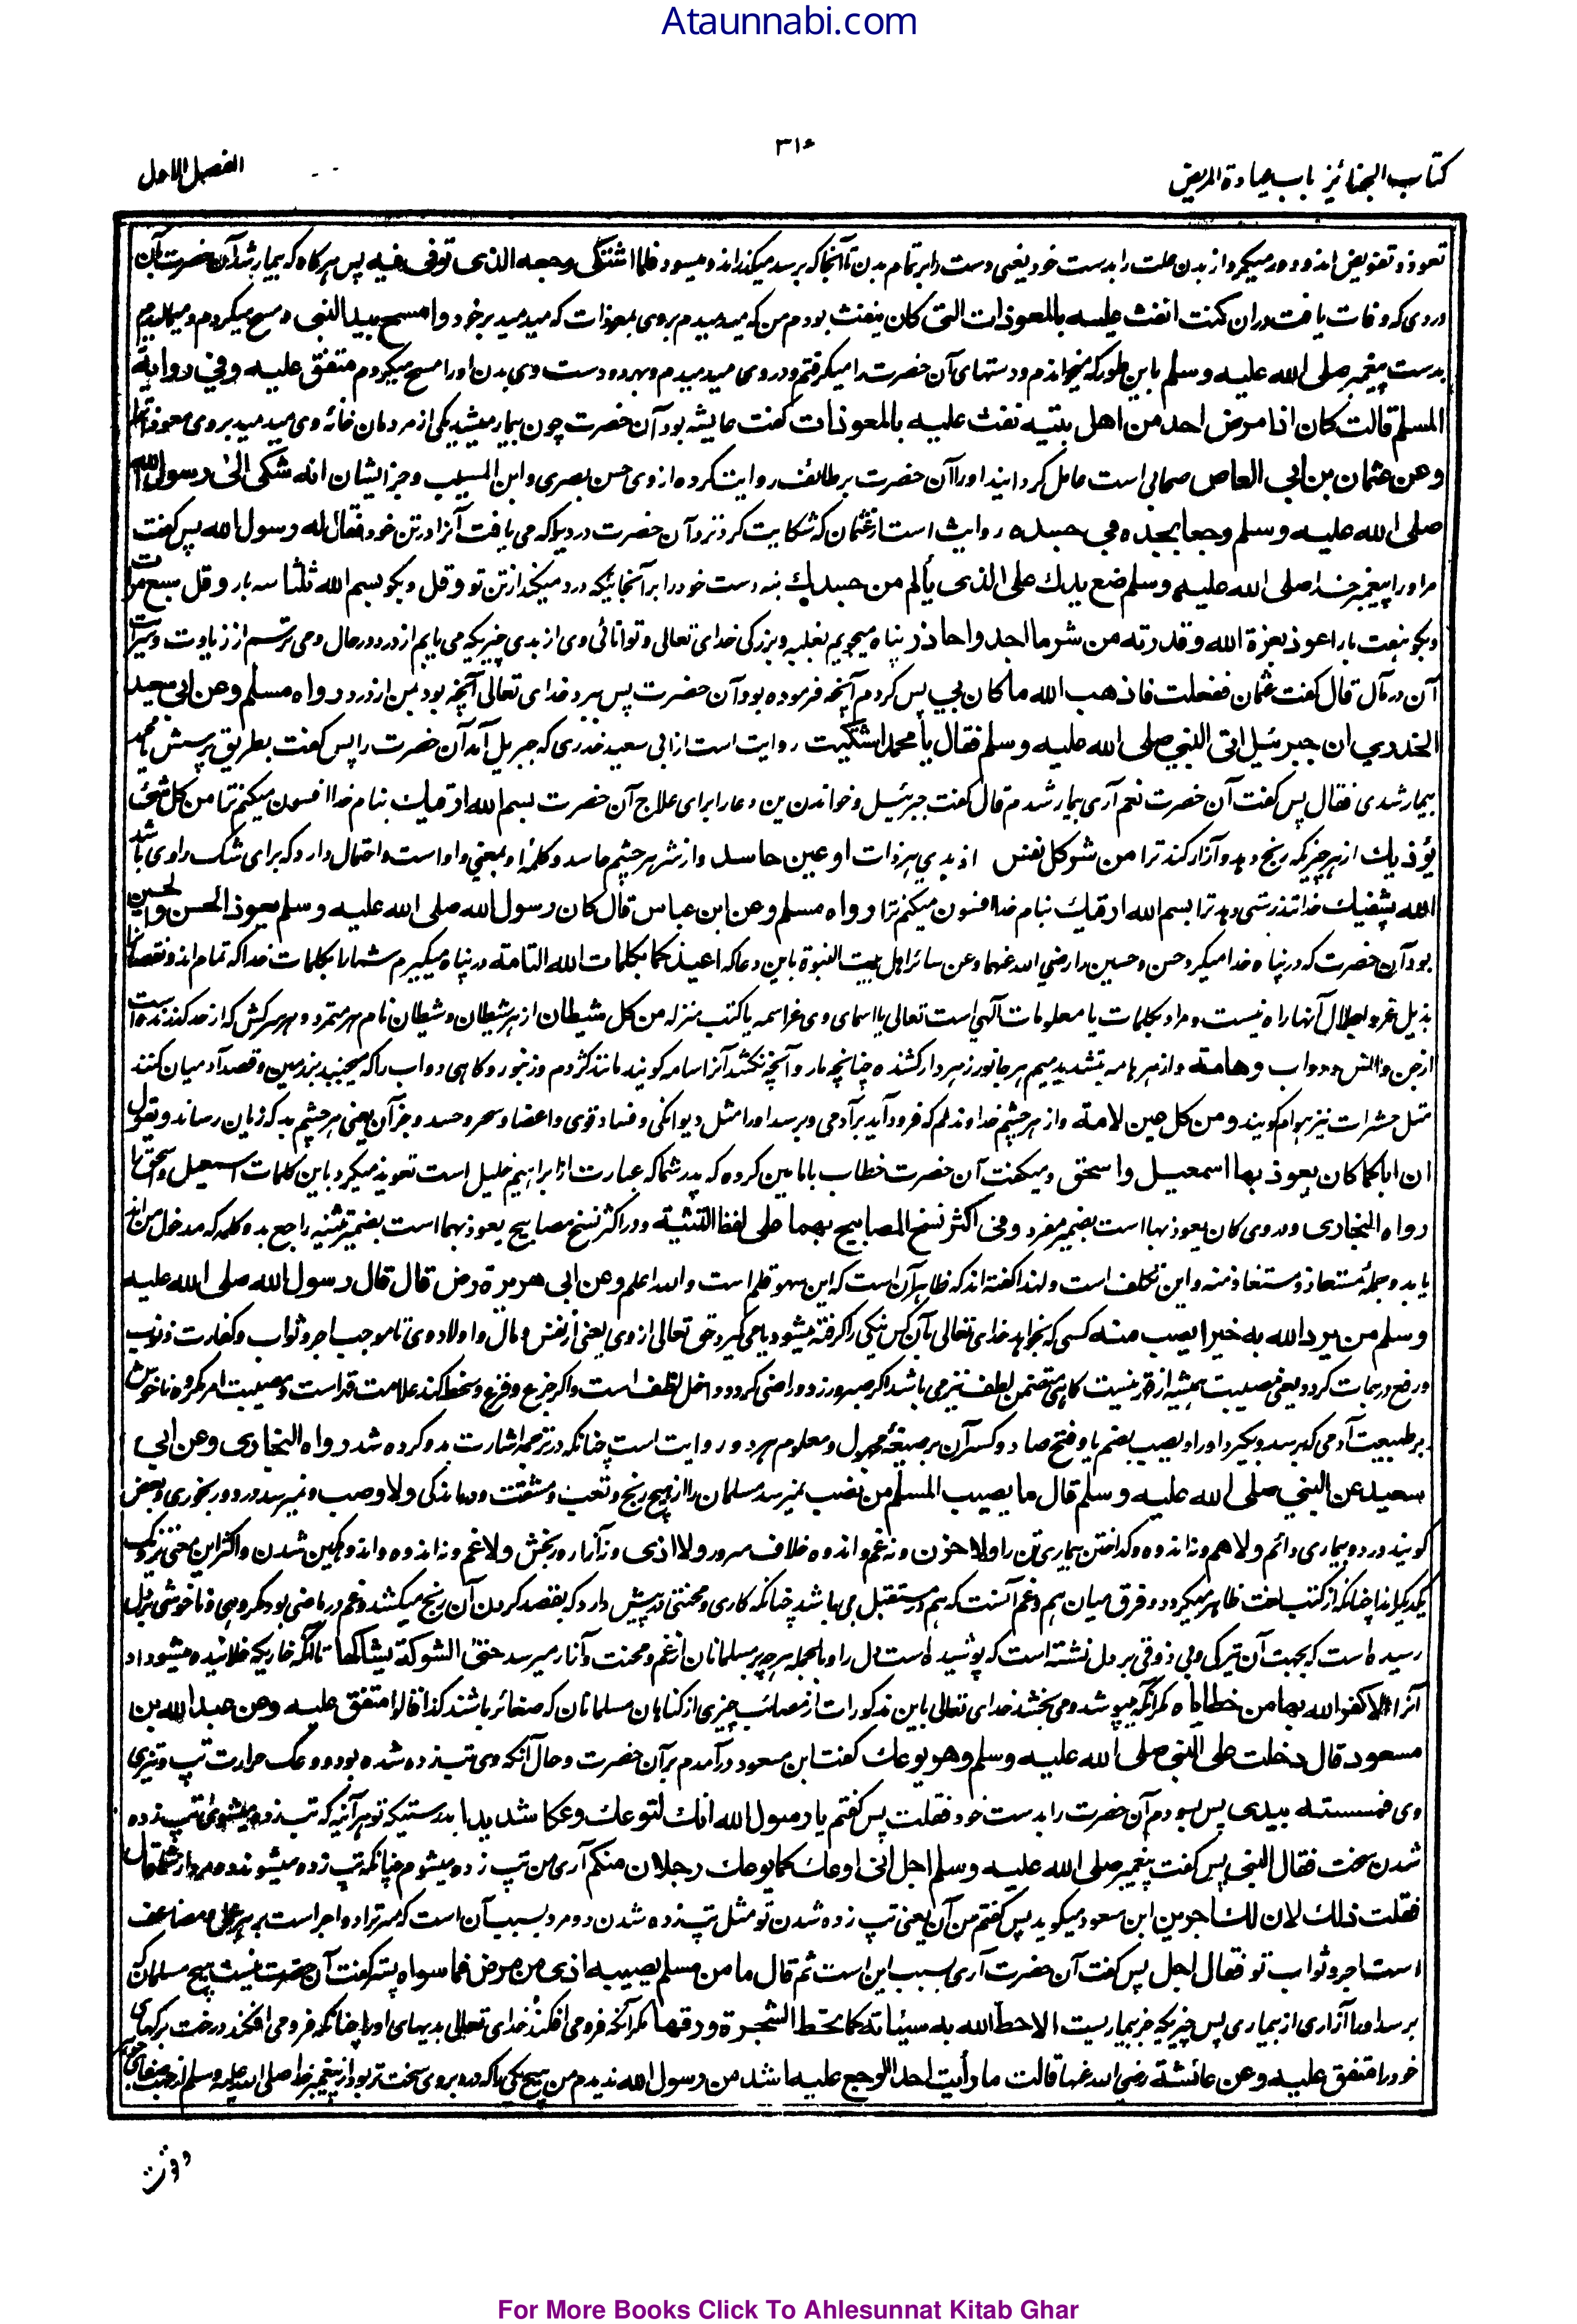 Ataunnabi.com
كتاب الجنائز باب عيادة المريض
الفصل الاول
تعوذ و تفویض اند و دور میکرد از بدن علت را بدست خود یعنی دست را بر تمام بدن تا آنجا که برسد میگذراند و میسود فلما اشتكى وجعه الذى توفى فيه پس هرگاه که بیمار شد آن حضرت آن
دردی که وفات یافت دران كنت انفث عليه بالمعوذات التى كان ينفث بودم من که میدمیدم بروی بمعوذات که میدمید بر خود وامسح بيد النبى و مسح میکردم و میمالیدم
بدست پیغمبر صلى الله عليه وسلم باین طور که میخواندم و دستهای آن حضرت را میگرفتم و در وی میدمیدم و بهر دو دست وی بدن او را مسح میکردم متفق عليه وفي رواية
المسلم قالت كان اذا مرض احد من اهل بيته نفث عليه بالمعوذات گفت عایشه بود آن حضرت چون بیمار میشد یکی از مردمان خانهٔ وی میدمید بروی معوذات
وعن عثمان بن ابي العاص صحابی است عامل گردانید او را آن حضرت بر طائف روایت کرده از وی حسن بصری و ابن المسیب و جز ایشان انه شكى الى رسول الله
صلى الله عليه وسلم وجعا يجده في جسده روایت است از عثمان که شکایت کرد نزد آن حضرت دردی را که می یافت آنرا در تن خود فقال له رسول الله پس گفت
مر او را پیغمبر خدا صلى الله عليه وسلم ضع يدك على الذى يألم من جسدك بنه دست خود را بر آنجائیکه درد میکند از تن تو وقل و بگو بسم الله ثلثا سه بار وقل سبع مرات
و بگو هفت بار اعوذ بعزة الله وقدرته من شر ما اجد واحاذر پناه میجویم بغلبه و بزرگی خدای تعالی و توانائی وی از بدی چیزیکه می یابم از درد در حال و می ترسم از زیادت
آن در مآل قال گفت عثمان ففعلت فاذهب الله ما كان بي پس کردم آنچه فرموده بود آن حضرت پس ببرد خدای تعالی آنچه بود بمن از درد رواه مسلم وعن ابي سعيد
الخدري ان جبرئيل اتى النبي صلى الله عليه وسلم فقال يا محمد اشتكيت روایت است از ابی سعید خدری که جبریل آمد آن حضرت را پس گفت بطریق پرسش یا محمد
بیمار شدی فقال پس گفت آن حضرت نعم آری بیمار شدم قال گفت جبرئیل و خواندن این دعا را برای علاج آن حضرت بسم الله ارقيك بنام خدا افسون میکنم ترا من كل شئ
يؤذيك از هر چیز که رنج دهد و آزار کند ترا من شر كل نفس از بدی هر ذات او عين حاسد و از شر هر چشم حاسد و کلمهٔ او بمعنی واو است و احتمال دارد که برای شک راوی باشد
الله يشفيك خدا تندرستی دهد ترا بسم الله ارقيك بنام خدا افسون میکنم ترا رواه مسلم وعن ابن عباس قال كان رسول الله صلى الله عليه وسلم يعوذ الحسن والحسين
بود آن حضرت که در پناه خدا میکرد حسن و حسین را رضي الله عنهما وعن سائر اهل بیت النبوة باین دعا که اعيذكما بكلمات الله التامة در پناه میگیرم شما را بکلمات خدا که تمام اند و نقصان
بذیل عز و جلال آنها راه نیست و مراد بکلمات یا معلومات الهی است تعالی یا اسمای وی عز اسمه یا کتب منزله من كل شيطان از هر شیطان و شیطان نام هر متمرد و هر سرکش که از حد گذرنده است
از جن و انس و دواب وهامة و از هر هامه بتشدید میم هر جانور زهردار کشنده چنانچه مار و آنچه نکشد آنرا سامه گویند مانند کژدم و زنبور و گاهی دواب را که میجنبد بر زمین و قصد آدمیان کنند
مثل حشرات نیز هوام گویند ومن كل عين لامة و از هر چشم خداوند لم که فرود آید بر آدمی و برسد او را مثل دیوانگی و فساد قوی و اعضا و سحر و حسد و جز آن یعنی هر چشم بد که زیان رساند ويقول
ان اباكما كان يعوذ بها اسمعيل واسحق و میگفت آن حضرت خطاب باامامین کرده که پدر شما که عبارت از ابراهیم خلیل است تعویذ میکرد باین کلمات اسمعیل و اسحق را
رواه البخارى و در وی كان يعوذ بها است بضمیر مفرد وفى اكثر نسخ المصابيح بهما على لفظ التثنية و در اکثر نسخ مصابیح یعوذ بهما است بضمیر تثنیه راجع بدو کلمه که مدخول من اند
یا بدو جملهٔ مستعاذ و مستعاذ منه و این تکلف است و لهذا گفته اند که ظاهر آن است که این سهو قلم است والله اعلم وعن ابى هريرة رض قال قال رسول الله صلى الله عليه
وسلم من يرد الله به خيرا يصب منه کسی که بخواهد خدای تعالی بآن کس نیکی را گرفته میشود یا می گیرد حق تعالی از وی یعنی از نفس و مال و اولاد وی تا موجب اجر و ثواب و کفارت ذنوب
و رفع درجات گردد یعنی مصیبت همیشه از قهر نیست گاهی متضمن لطف نیز می باشد اگر صبر ورزد و راضی گردد داخل لطف است و اگر جزع و فزع و سخط کند علامت قهر است و مصیبت امر مکروه ناخوش
بر طبیعت آدمی که برسد و بگیرد او را و یصیب بضم یا و فتح صاد و کسر آن بر صیغهٔ مجهول و معلوم هر دو روایت است چنانکه در ترجمه اشارت بدو کرده شد رواه البخاري وعن ابي
سعيد عن النبي صلى الله عليه وسلم قال ما يصيب المسلم من نصب نمیرسد مسلمان را از هیچ رنج و تعب و مشقت و درماندگی ولا وصب و نمیرسد درد و رنجوری و بعض
گویند درد و بیماری دائم ولا هم و نه اندوه و گداختن بیماری تن را ولا حزن و نه غم و اندوه خلاف سرور ولا اذى و نه آزار و رنجش ولا غم و نه اندوه و اندوهگین شدن و اکثر این معنی نزدیک
یکدیگر اند چنانکه از کتب لغت ظاهر میگردد و فرق میان هم و غم آنست که هم در مستقبل می باشد چنانکه کاری و محنتی در پیش دارد که بقصد کردن آن رنج میکشد و غم در ماضی بود مکروهی و ناخوشی بدل
رسیده است که بجهت آن تیرگی و بی ذوقی بر دل نشسته است که پوشیده است دل را و بالجمله هر چه بر مسلمانان از غم و محنت و آزار میرسد حتى الشوكة يشاكها تا آنکه خاریکه خلانیده میشود او
آنرا الا كفر الله بها من خطاياه مگر آنکه میپوشد و می بخشد خدای تعالی باین مذکورات از مصائب چیزی از گناهان مسلمانان که صغائر باشند کذا قالوا متفق عليه وعن عبد الله بن
مسعود قال دخلت على النبي صلى الله عليه وسلم وهو يوعك گفت ابن مسعود در آمدم بر آن حضرت و حال آنکه وی تب زده شده بود و وعک حرارت تپ و تیزی
وی فمسسته بيدى پس بسودم آن حضرت را بدست خود فقلت پس گفتم يا رسول الله انك لتوعك وعكا شديدا بدرستیکه تو هر آئینه که تب زده میشوی تپ زده
شدن سخت فقال النبى پس گفت پیغمبر صلى الله عليه وسلم اجل انى اوعك كما يوعك رجلان منكم آری من تپ زده میشوم چنانکه تپ زده میشوند دو مرد از شما قال
فقلت ذلك لان لك اجرين ابن مسعود میگوید پس گفتم من آن یعنی تپ زده شدن تو مثل تپ زده شدن دو مرد بسبب آن است که مر ترا دو اجر است بر هر عمل و مضاعف
است اجر و ثواب تو فقال اجل پس گفت آن حضرت آری سبب این است ثم قال ما من مسلم يصيبه اذى من مرض فما سواه پستر گفت آن حضرت نیست هیچ مسلمان که
برسد او را آزاری از بیماری پس چیزیکه جز بیماریست الا حط الله به سيئاته كما تحط الشجرة ورقها مگر آنکه فرو می افگند خدای تعالی بدیهای او را چنانکه فرو می افگند درخت برگهای
خود را متفق عليه وعن عائشة رضي الله عنها قالت ما رأيت احدا الوجع عليه اشد من رسول الله ندیدم من هیچ یکی را که درد بروی سخت تر بود از پیغمبر خدا صلى الله عليه وسلم
For More Books Click To Ahlesunnat Kitab Ghar